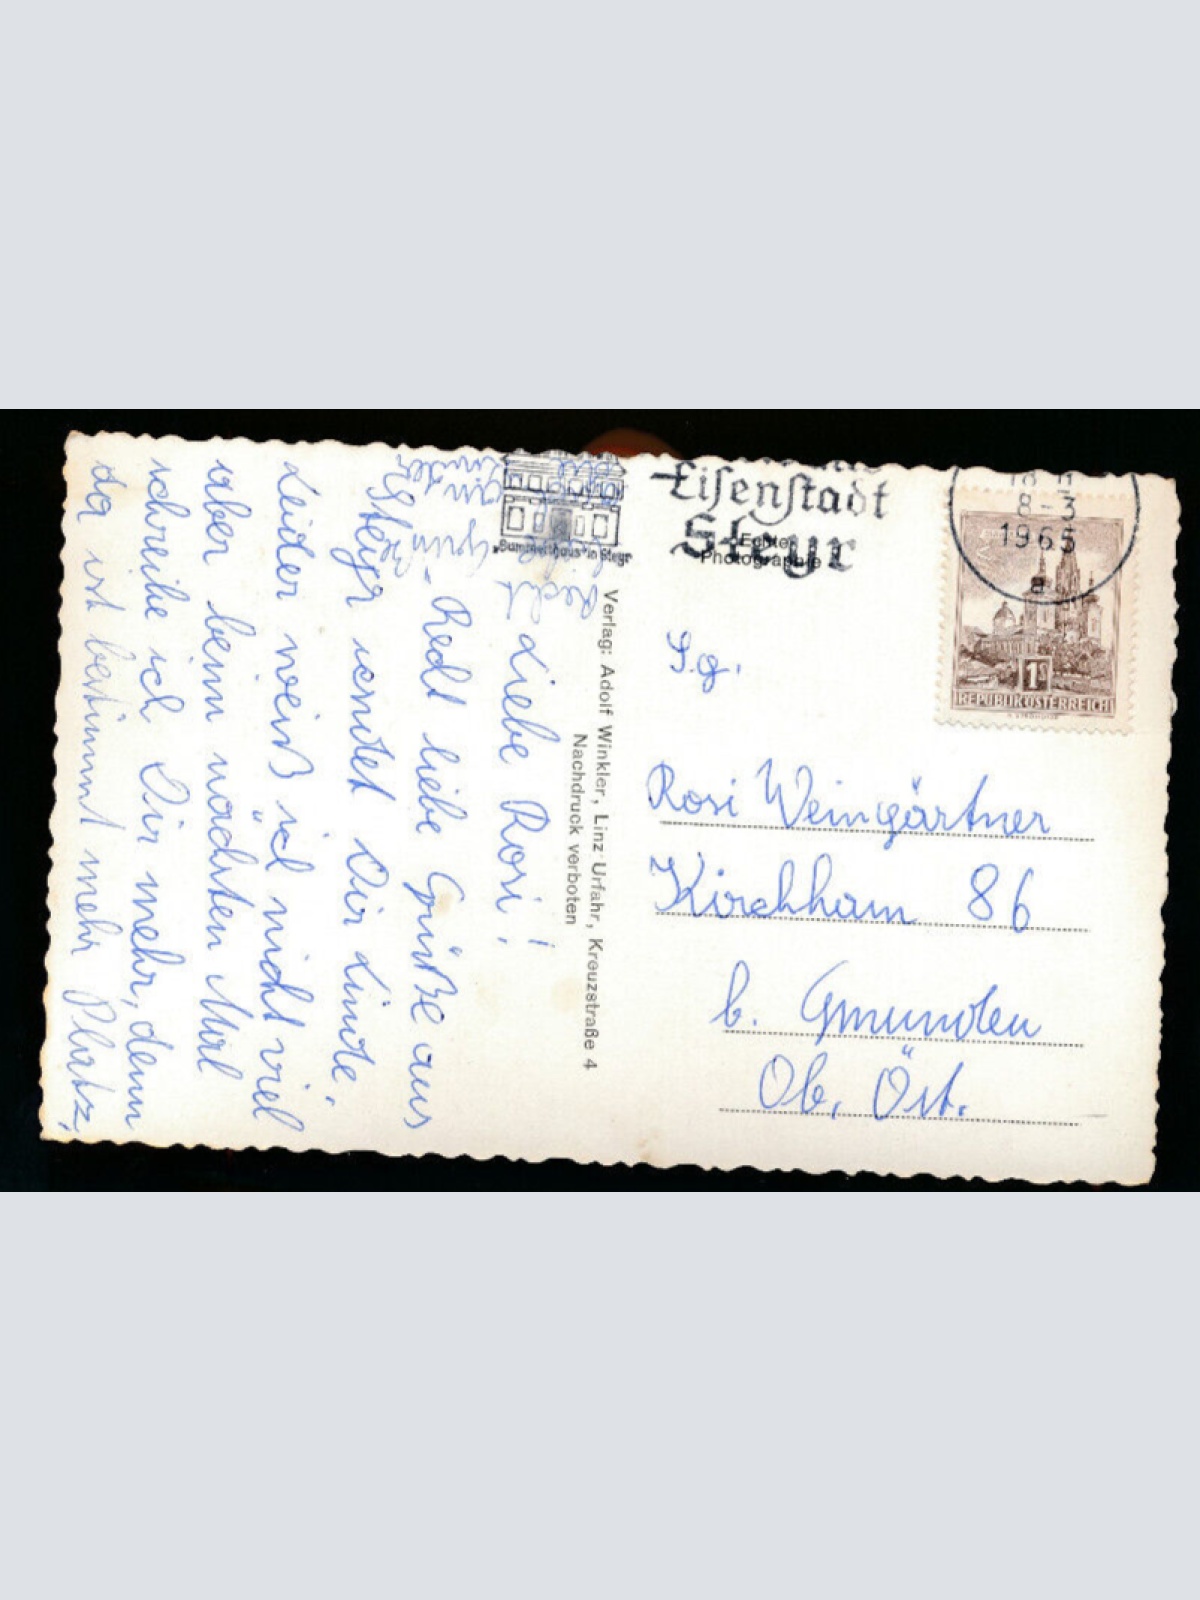 Liebe Rosi!
Recht liebe Grüße aus
Steyr sendet Dir Linde.
Leider weiß ich nicht viel
aber beim nächsten Mal
schreibe ich Dir mehr, denn
da ist bestimmt mehr Platz.
Recht
Verlag: Adolf Winkler, Linz-Urfahr, Kreuzstraße 4
Nachdruck verboten
„Bummerlhaus" in Steyr
Eisenstadt
Steyr
Echte
Photographie
8-3
1965
a
1S
REPUBLIK ÖSTERREICH
S.g.
Rosi Weingärtner
Kirchham 86
b. Gmunden
Ob. Öst.